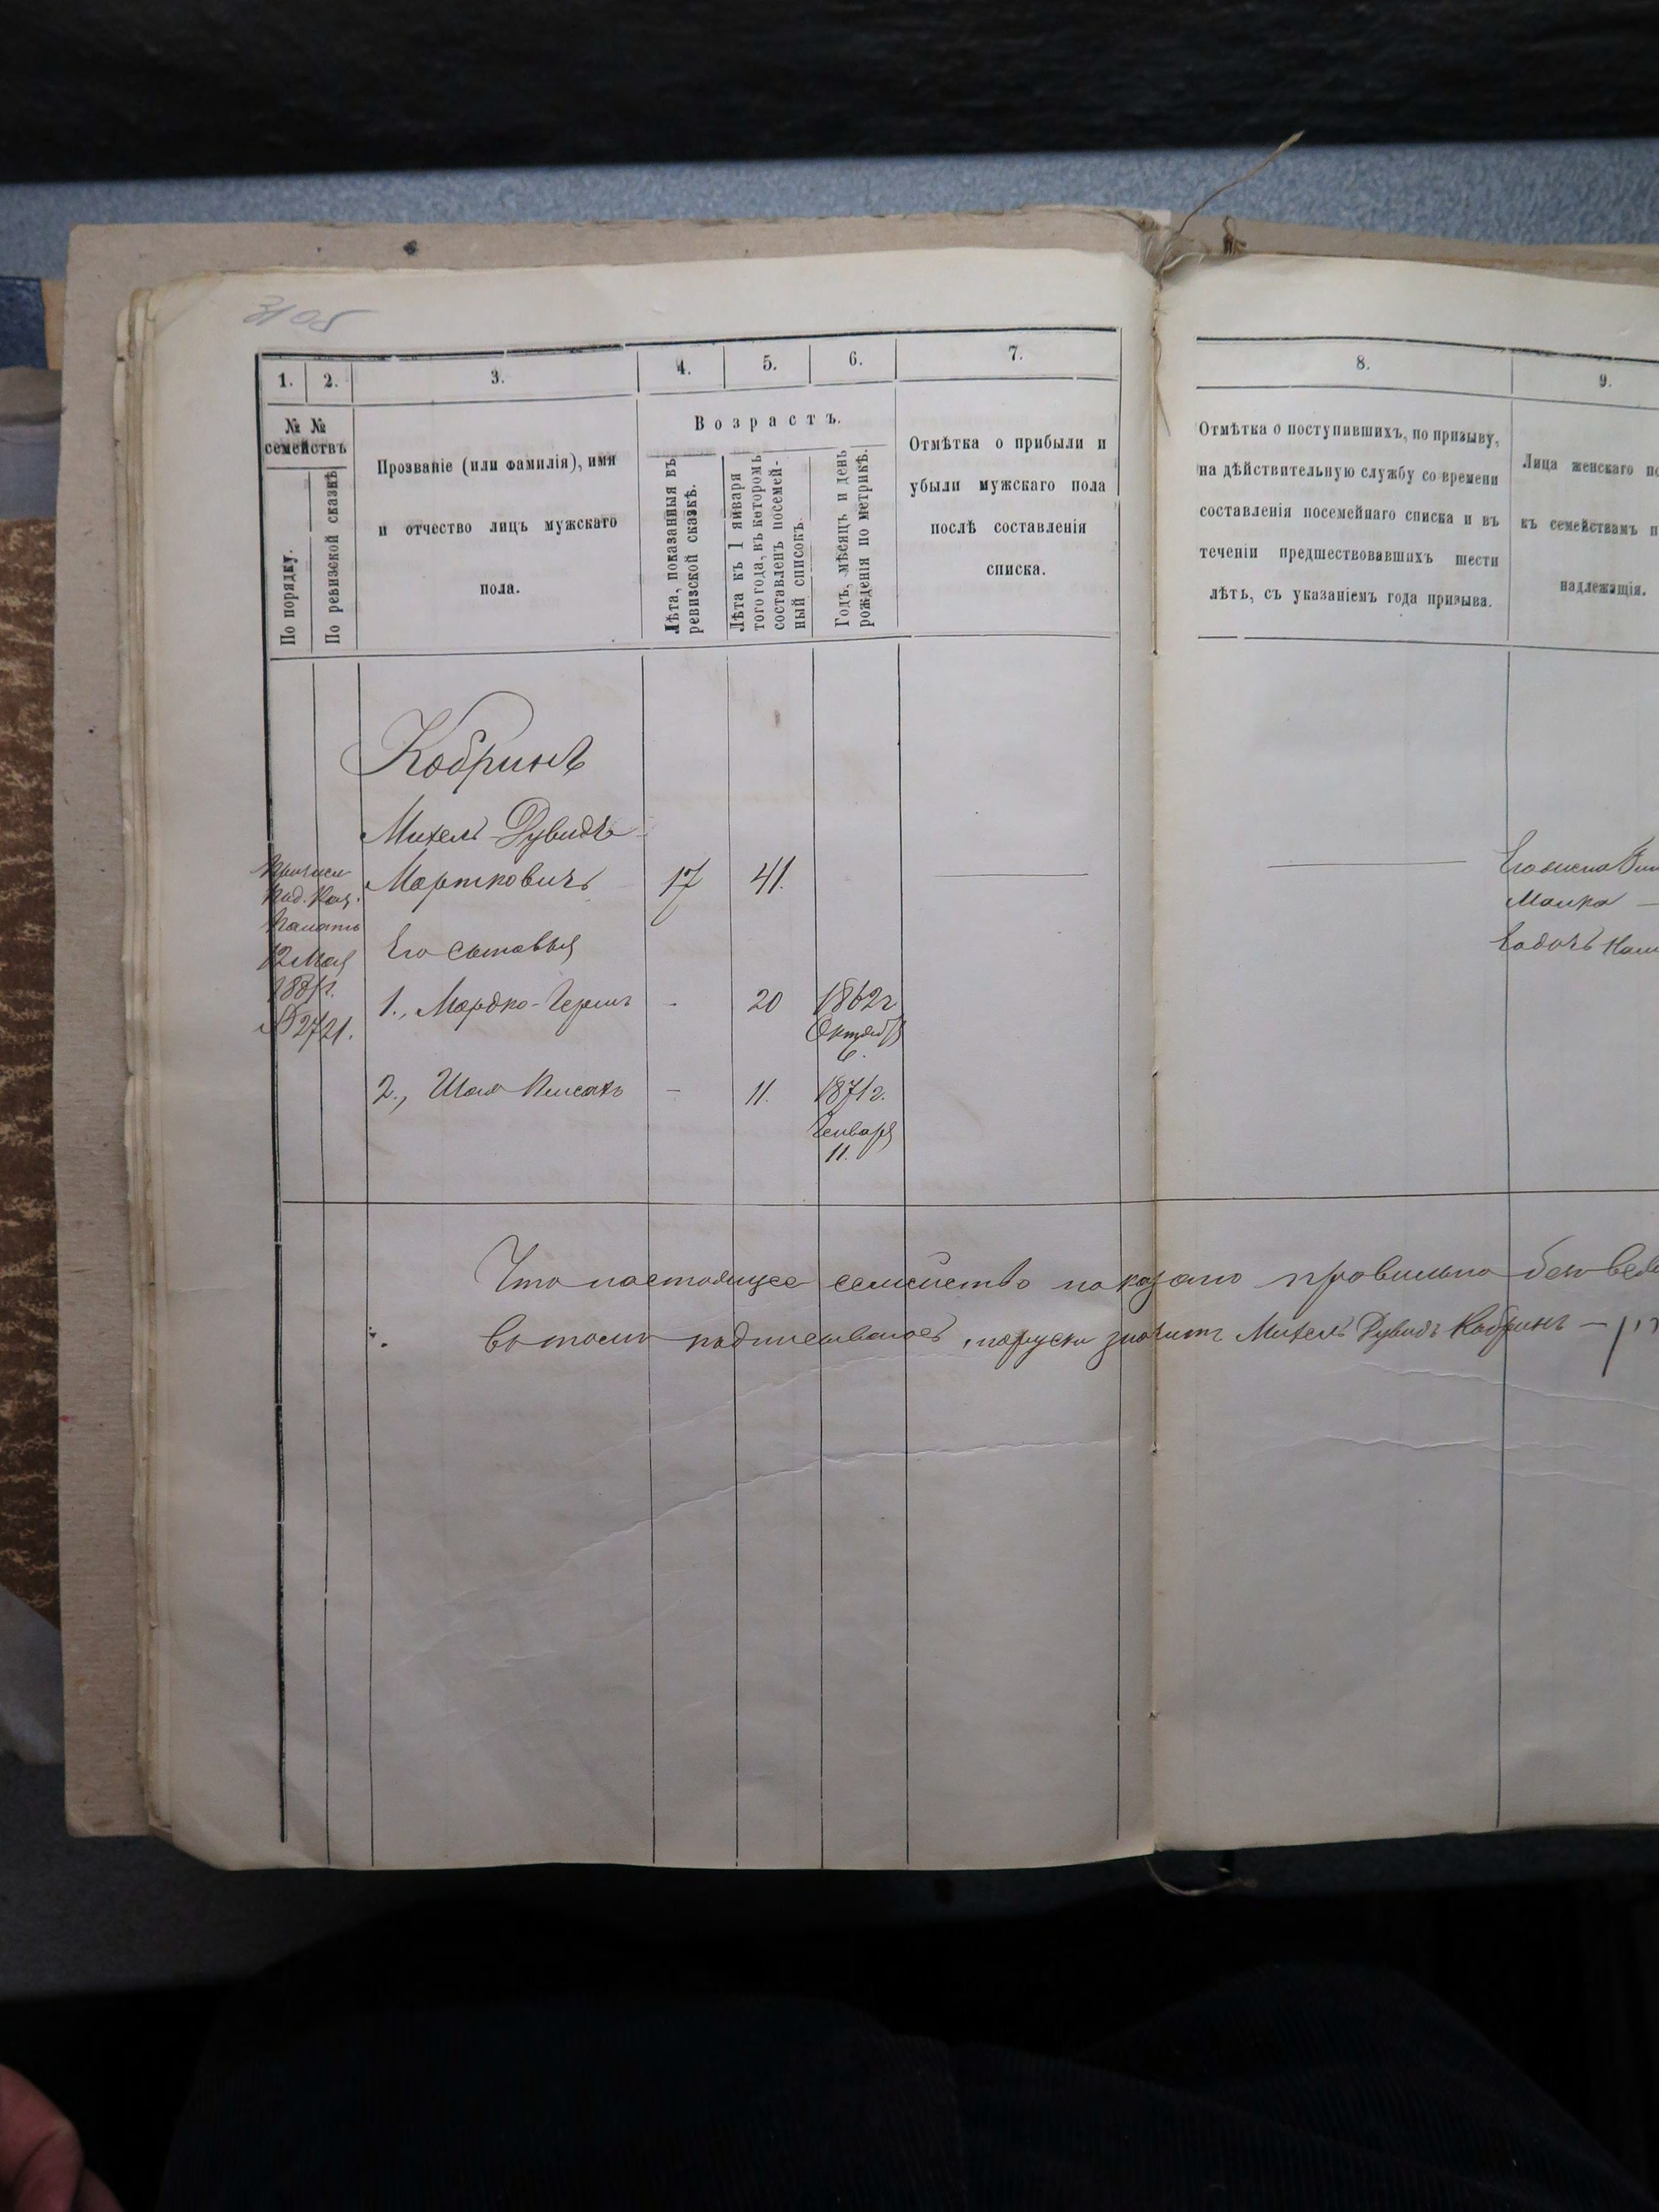 3105
1.
2.
3.
4.
5.
6.
7.
№ №
семействъ
По порядку.
По ревизской сказкѣ
Прозваніе (или фамилія), имя
и отчество лицъ мужскаго
пола.
Возрастъ.
Лѣта, показанныя въ
ревизской сказкѣ.
Лѣта къ 1 января
того года, въ которомъ
составленъ посемей-
ный списокъ.
Годъ, мѣсяцъ и день
рожденія по метрикѣ.
Отмѣтка о прибыли и
убыли мужскаго пола
послѣ составленія
списка.
8.
9.
Отмѣтка о поступившихъ, по призыву,
на дѣйствительную службу со времени
составленія посемейнаго списка и въ
теченіи предшествовавшихъ шести
лѣтъ, съ указаніемъ года призыва.
Лица женскаго по
къ семействамъ п
надлежащія.
Кобринъ
Михель-Дувидъ
Мортковичъ 17 41.
Его сыновья
1., Мордко-Герш 20 1862г
Октября
6.
2., Шая 11. 1871г.
Января
11.
Палаты
12 Мая
188 г.
№ 2721.
Его жена
Малка
Его дочь
Что настоящее семейство показано правильно
въ томъ подписываюсь, Михель Дувидъ Кобринъ —